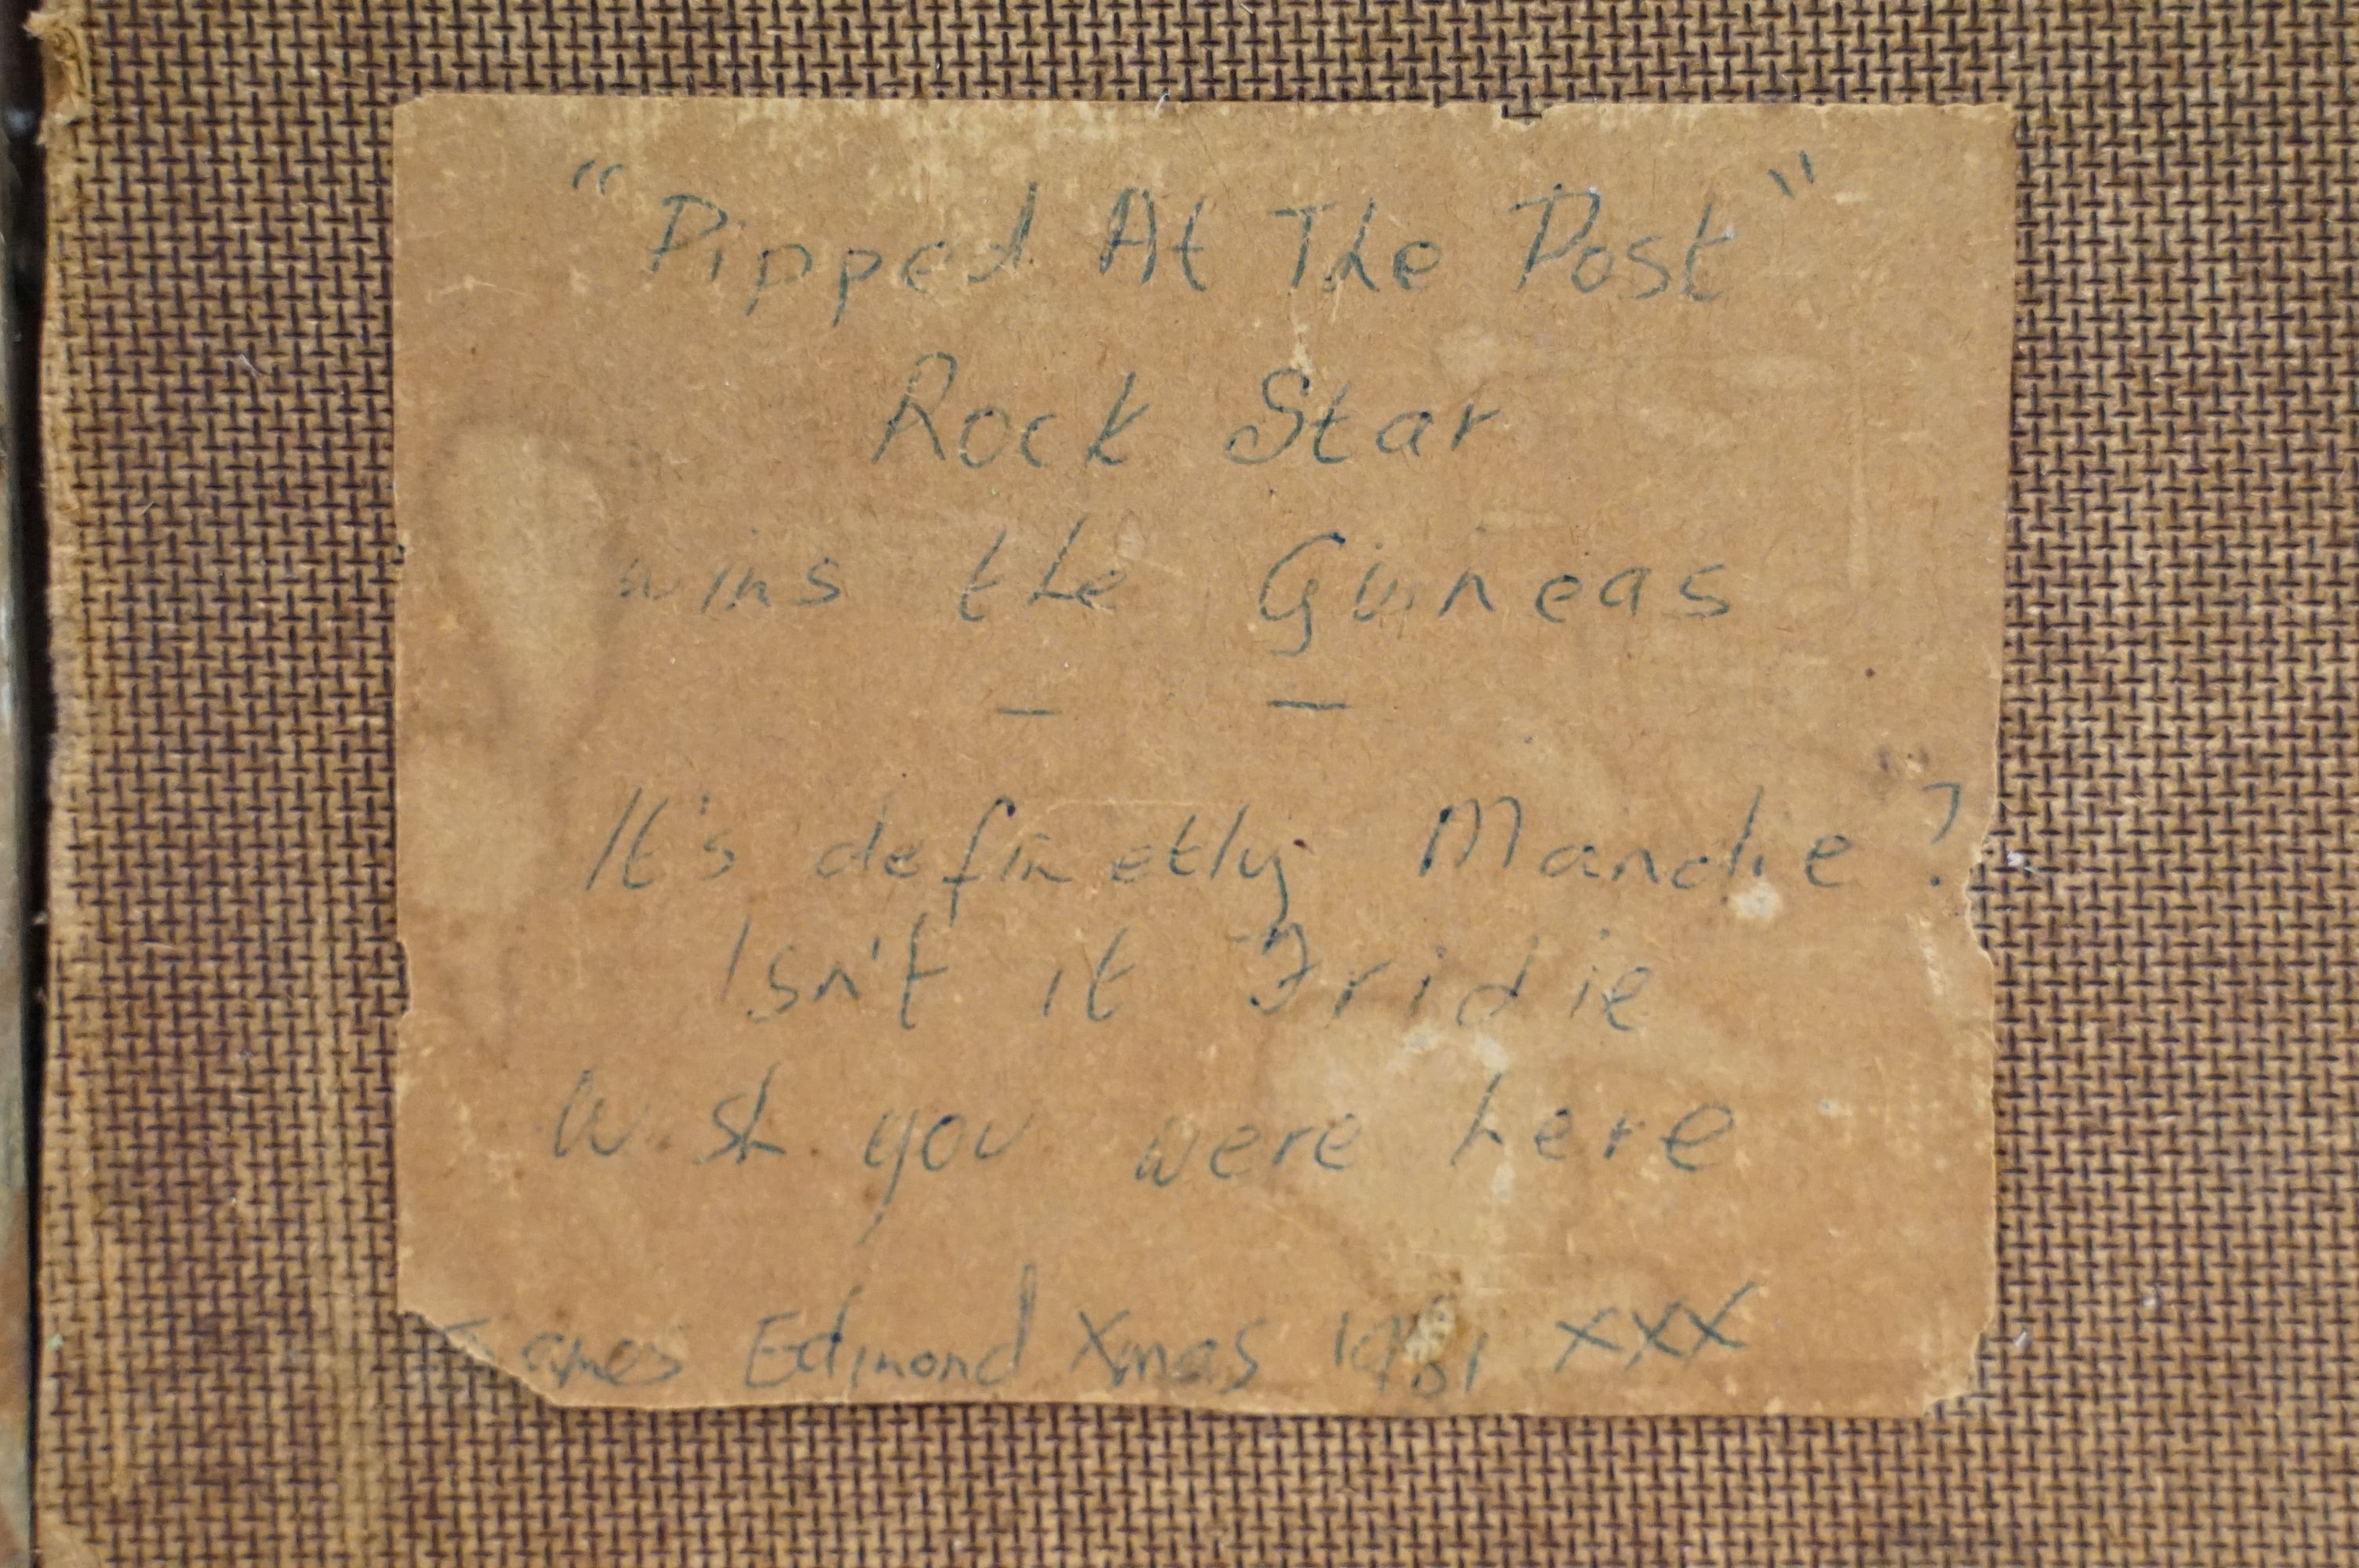 "Pipped At The Post"
Rock Star
wins the Guineas
— —
It's definetly Mandie?
Isn't it Fridie
Wish you were here
James Edmond Xmas XXX